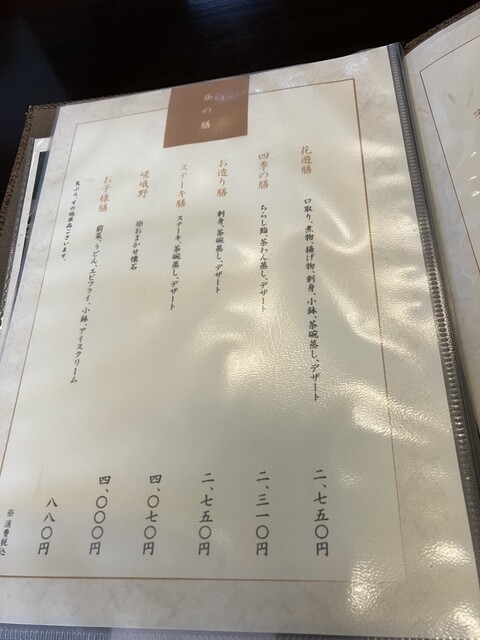 昼の膳
花遊膳
口取り、煮物、揚げ物、刺身、小鉢、茶碗蒸し、デザート
二、七五〇円
四季の膳
ちらし鮨、茶わん蒸し、デザート
二、三一〇円
お造り膳
刺身、茶碗蒸し、デザート
二、七五〇円
ステーキ膳
ステーキ、茶碗蒸し、デザート
四、〇七〇円
嵯峨野
※おまかせ懐石
四、〇〇〇円
お子様膳
前菜、うどん、エビフライ、小鉢、アイスクリーム
八八〇円
天ぷら、その他単品ございます。
※消費税込